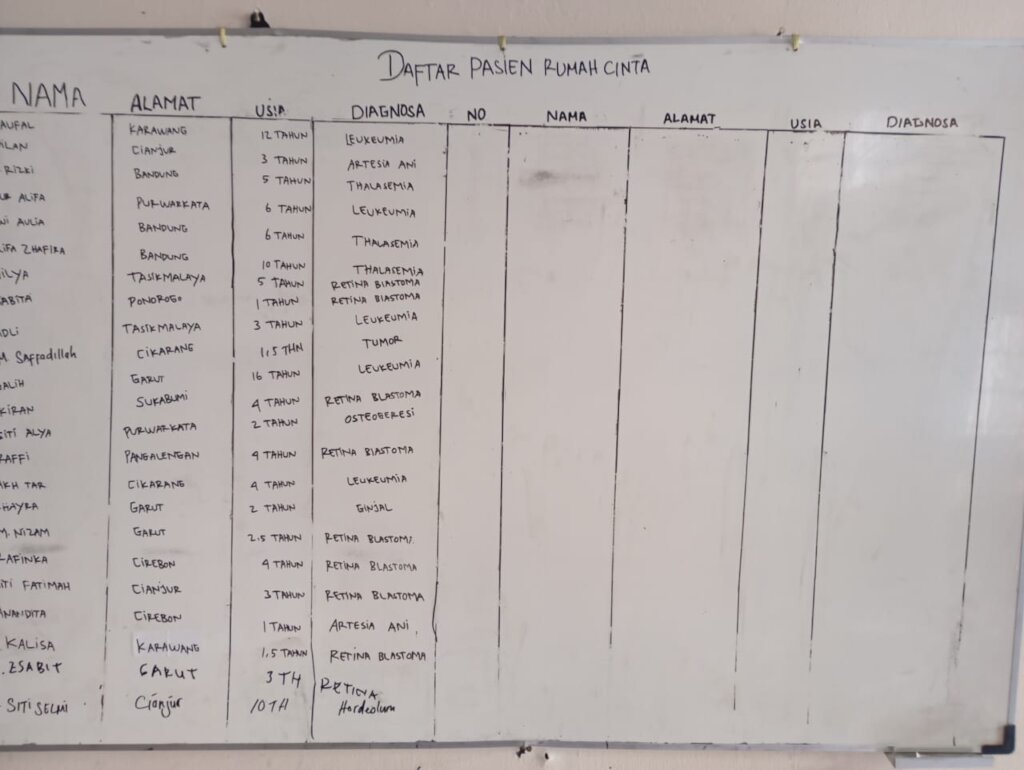 DAFTAR PASIEN RUMAH CINTA
NAMA ALAMAT USIA DIAGNOSA NO NAMA ALAMAT USIA DIAGNOSA
AUFAL KARAWANG 12 TAHUN LEUKEUMIA
ILAN CIANJUR 3 TAHUN ARTESIA ANI
RIZKI BANDUNG 5 TAHUN THALASEMIA
UR ALIFA PURWARKATA 6 TAHUN LEUKEUMIA
NI AULIA BANDUNG 6 TAHUN THALASEMIA
IFA ZHAFIRA BANDUNG 10 TAHUN THALASEMIA
ILYA TASIKMALAYA 5 TAHUN RETINA BLASTOMA
ABITA PONOROGO 1 TAHUN RETINA BLASTOMA
DLI TASIKMALAYA 3 TAHUN LEUKEUMIA
M. Saffadillah CIKARANG 1,5 THN TUMOR
ALIH GARUT 16 TAHUN LEUKEUMIA
KIRAN SUKABUMI 4 TAHUN RETINA BLASTOMA
SITI ALYA PURWARKATA 2 TAHUN OSTEOBERESI
RAFFI PANGALENGAN 4 TAHUN RETINA BLASTOMA
AKH TAR CIKARANG 4 TAHUN LEUKEUMIA
HAYRA GARUT 2 TAHUN GINJAL
M. NIZAM GARUT 2.5 TAHUN RETINA BLASTOM
LAFINKA CIREBON 4 TAHUN RETINA BLASTOMA
ITI FATIMAH CIANJUR 3 TAHUN RETINA BLASTOMA
ANANDITA CIREBON 1 TAHUN ARTESIA ANI
KALISA KARAWANG 1,5 TAHUN RETINA BLASTOMA
. ZSABIT GARUT 3 TH RETINA
SITI SELMI Cianjur 10 TH Hordeolum